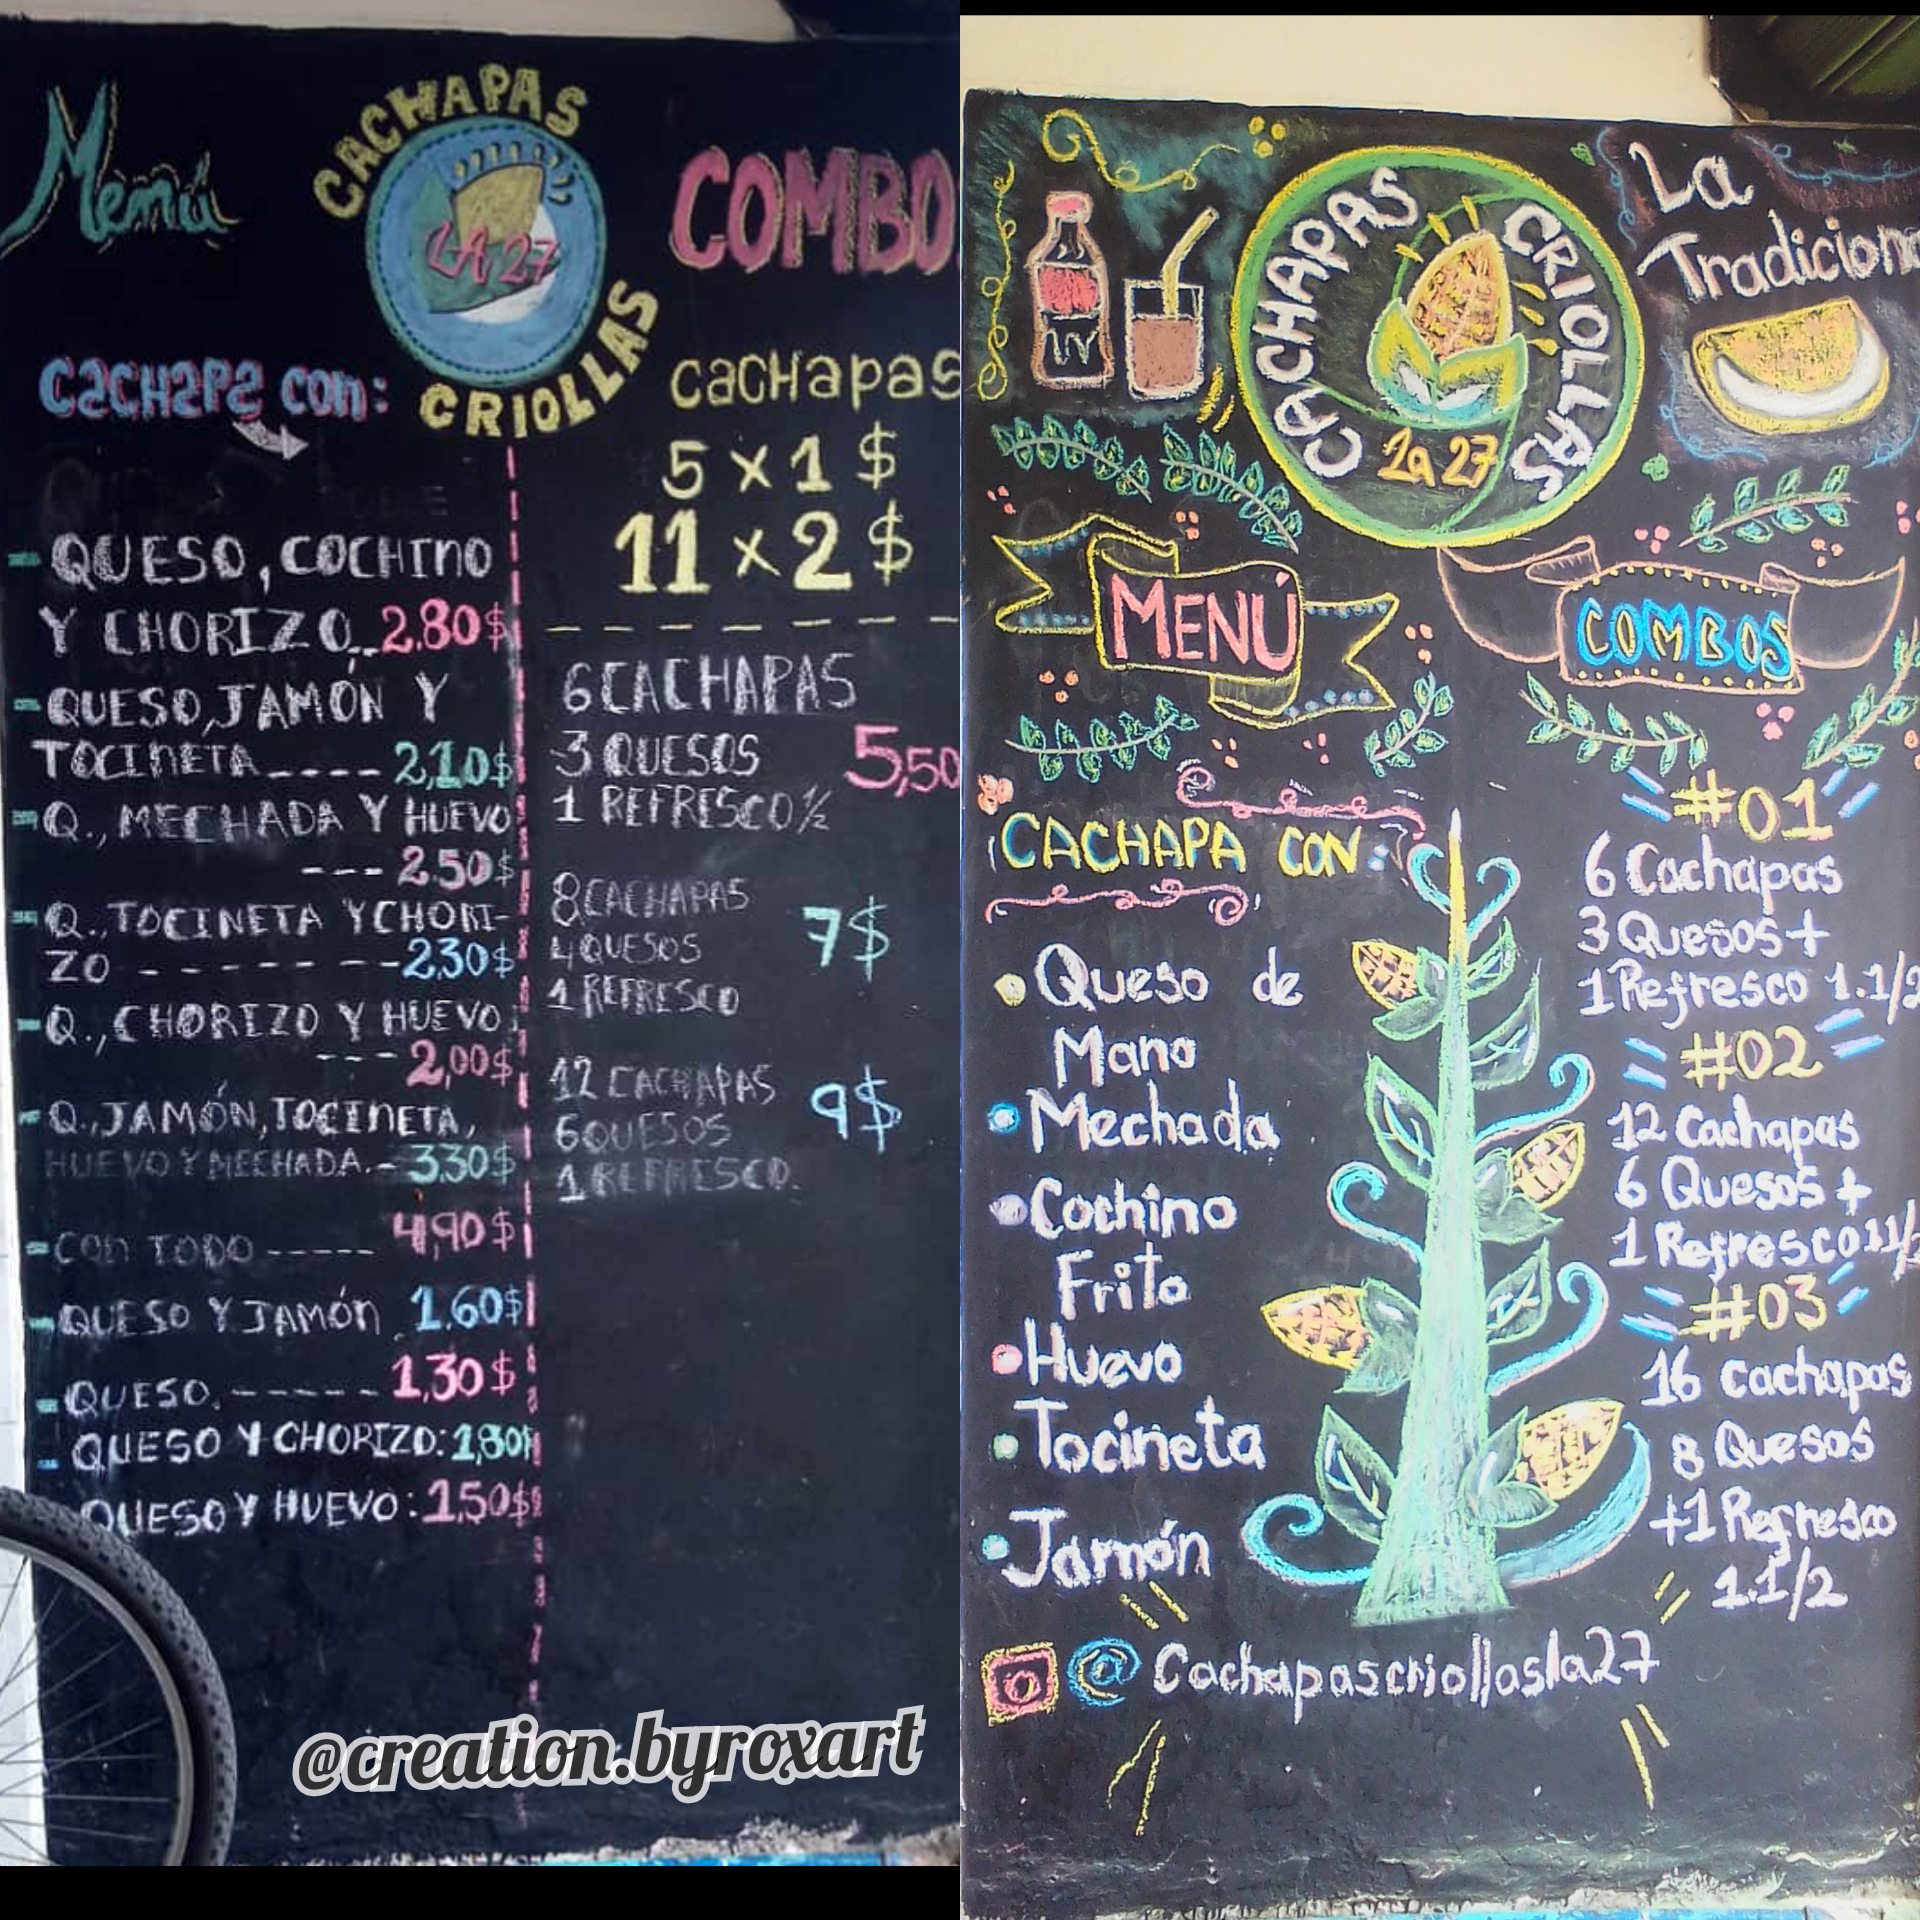 Menú
CACHAPAS
LA 27
CRIOLLAS
COMBO
CACHAPA con:
cacHapas
5 x 1 $
11 x 2 $
- QUESO, COCHINO
Y CHORIZO.. 2.80$
- QUESO, JAMÓN Y
TOCINETA---- 2,10$
- Q., MECHADA Y HUEVO
--- 2.50$
- Q., TOCINETA Y CHORI-
ZO - - - - - - - -- 2.30$
- Q., CHORIZO Y HUEVO
--- 2,00$
- Q., JAMÓN, TOCINETA,
HUEVO Y MECHADA.- 3.30$
- CON TODO ----- 4,90$
- QUESO Y JAMÓN. 1.60$
- QUESO. ----- 1,30$
- QUESO Y CHORIZO: 1,80$
QUESO Y HUEVO: 1,50$
6 CACHAPAS
3 QUESOS 5,50
1 REFRESCO ½
8 CACHAPAS
4 QUESOS 7$
1 REFRESCO
12 CACHAPAS
6 QUESOS 9$
1 REFRESCO.
@creation.byroxart
CACHAPAS CRIOLLAS
La 27
La
Tradicion
MENÚ
COMBOS
CACHAPA CON:
Queso de
Mano
Mechada
Cochino
Frito
Huevo
Tocineta
Jamón
#01
6 Cachapas
3 Quesos +
1 Refresco 1.1/2
#02
12 Cachapas
6 Quesos +
1 Refresco 1 1/2
#03
16 Cachapas
8 Quesos
+1 Refresco
1.1/2
@ Cachapascriollasla27